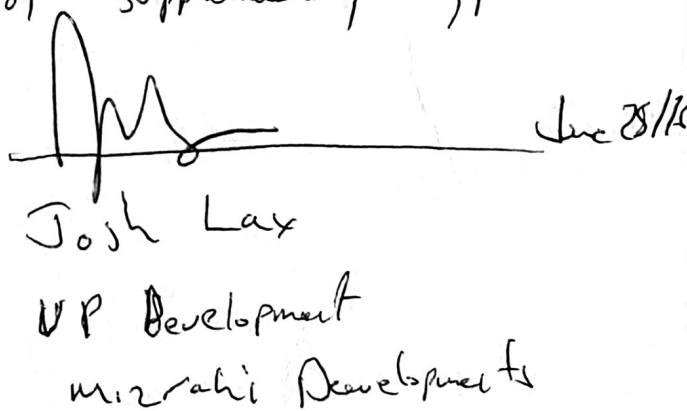 June 28/15
Josh Lax
VP Development
Mizrahi Developments